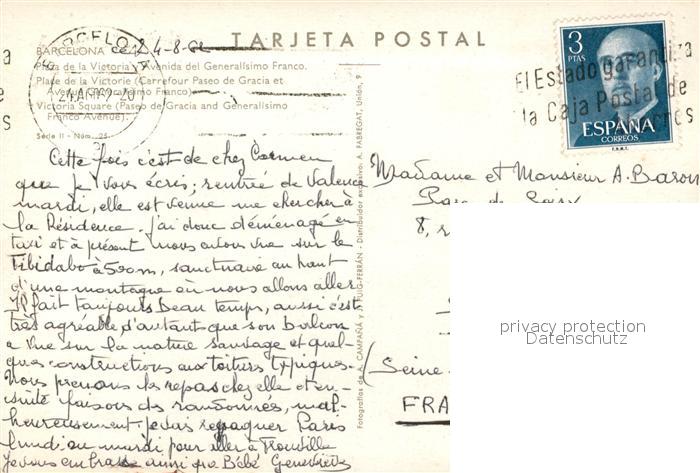 TARJETA POSTAL
BARCELONA
ce 24-8-62
Plaza de la Victoria (Avenida del Generalísimo Franco.
Place de la Victorie (Carrefour Paseo de Gracia et
Avenue Generalísimo Franco)
Victoria Square (Paseo de Gracia and Generalísimo
Franco Avenue).
Serie II - Núm. 25
BARCELONA
3
PTAS
ESPAÑA
CORREOS
F.N.M.T.
El Estado garantiza
la Caja Postal de
Cette fois c'est de chez Carmen
que je vous écris; rentrée de Valence
mardi, elle est venue me chercher à
la Résidence. j'ai donc déménagé en
taxi et à présent nous avons vue sur le
Tibidabo à 500m, sanctuaire au haut
d'une montagne où nous allons aller
Il fait toujours beau temps, aussi c'est
très agréable d'autant que son balcon
a vue sur la nature sauvage et quel-
ques constructions aux toitures typiques.
Nous prenons les repas chez elle et en-
suite faisons des randonnées, mal-
heureusement je vais regagner Paris
lundi ou mardi pour aller à Trouville
Je vous embrasse ainsi que Bébé Geneviève
Fotografías de A. CAMPAÑÁ y J. PUIG-FERRÁN - Distribuidor exclusivo: A. FABREGAT, Unión, 9
Madame et Monsieur A. Baron
8, r
(Seine
FRA
privacy protection
Datenschutz